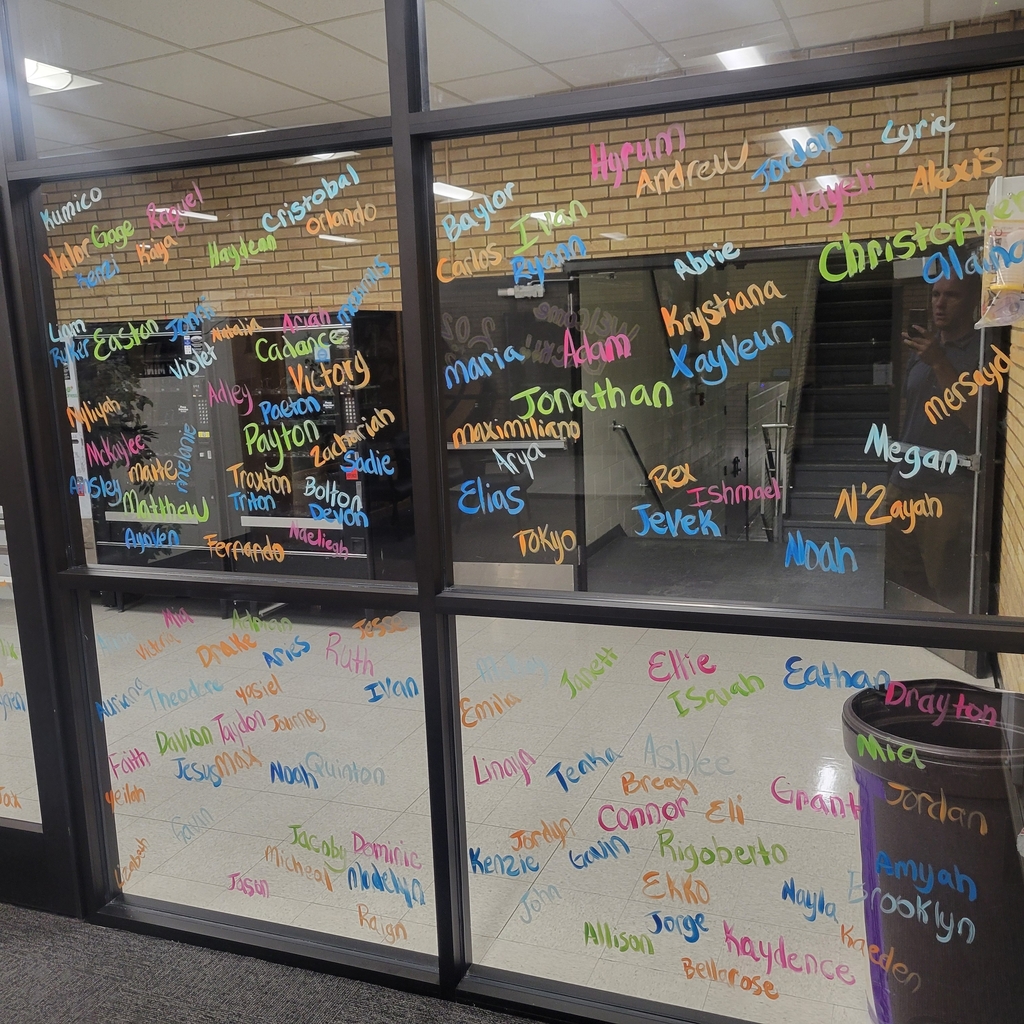 Kumico
Raquel
Cristobal
Orlando
Valor
Gage
Kenzi
Kiya
Haydean
Liam
Ryker
Easton
Natalia
Arian
Violet
Cadance
Victory
Adley
Paeton
Payton
Zachariah
Mckaylee
Marte
Melanie
Traxton
Sadie
Ansley
Matthew
Triton
Bolton
Devon
Aynven
Fernando
Naeliegh
Baylor
Ivan
Carlos
Rynn
Hyrum
Andrew
Jordan
Lyric
Nayeli
Alexis
Abrie
Christopher
Alaina
Krystiana
Maria
Adam
XayVeun
Jonathan
Mersayd
Maximiliano
Arya
Megan
Elias
Rex
Ishmael
N'Zayah
Tokyo
Jevek
Noah
Mia
Adrian
Jesse
Victoria
Drake
Aries
Ruth
Auriana
Theodore
Yosiel
Ivan
Davion
Taydon
Journey
Faith
Jesus
Max
Noah
Quinton
Yeilan
Gavin
Jacoby
Dominic
Elizabeth
Micheal
Madelyn
Jason
Raign
Janett
Ellie
Isaiah
Eathan
Drayton
Emilia
Mia
Linaya
Tenka
Ashlee
Brean
Grant
Jordan
Connor
Eli
Jordyn
Kenzie
Gavin
Rigoberto
Amyah
Ekko
Nayla
Brooklyn
John
Jorge
Allison
Kaydence
Kaeden
Bellarose
Jax